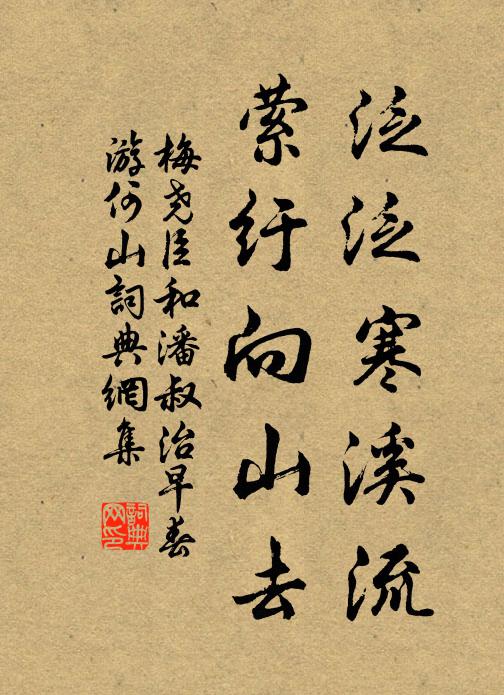 泛泛寒溪流
萦纡向山去
梅尧臣和潘叔治早春
游何山詞典網集
詞典
网印